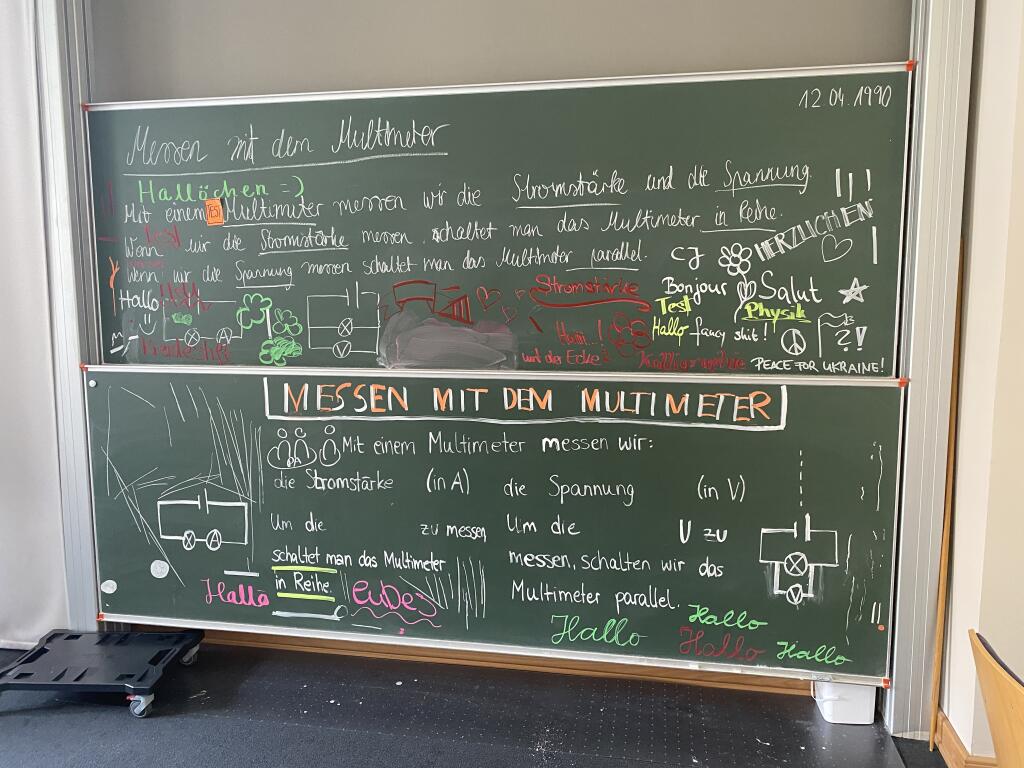 12.04.1990
Messen mit dem Multimeter
Hallöchen =)
Mit einem Multimeter messen wir die Stromstärke und die Spannung
Test
Wenn wir die Stromstärke messen, schaltet man das Multimeter in Reihe.
HERZLICHEN
Wenn wir die Spannung messen schaltet man das Multimeter parallel.
CJ
Hallo
Stromstärke
Bonjour
Salut
Test
Physik
Hallo fancy shit!
?!
Kreidestift
und der Ecke?
PEACE FOR UKRAINE!
MESSEN MIT DEM MULTIMETER
Mit einem Multimeter messen wir:
die Stromstärke (in A)
die Spannung (in V)
Um die zu messen
schaltet man das Multimeter
in Reihe.
Um die U zu
messen, schalten wir das
Multimeter parallel.
A
V
Hallo
Hallo
Hallo
Hallo
Hallo